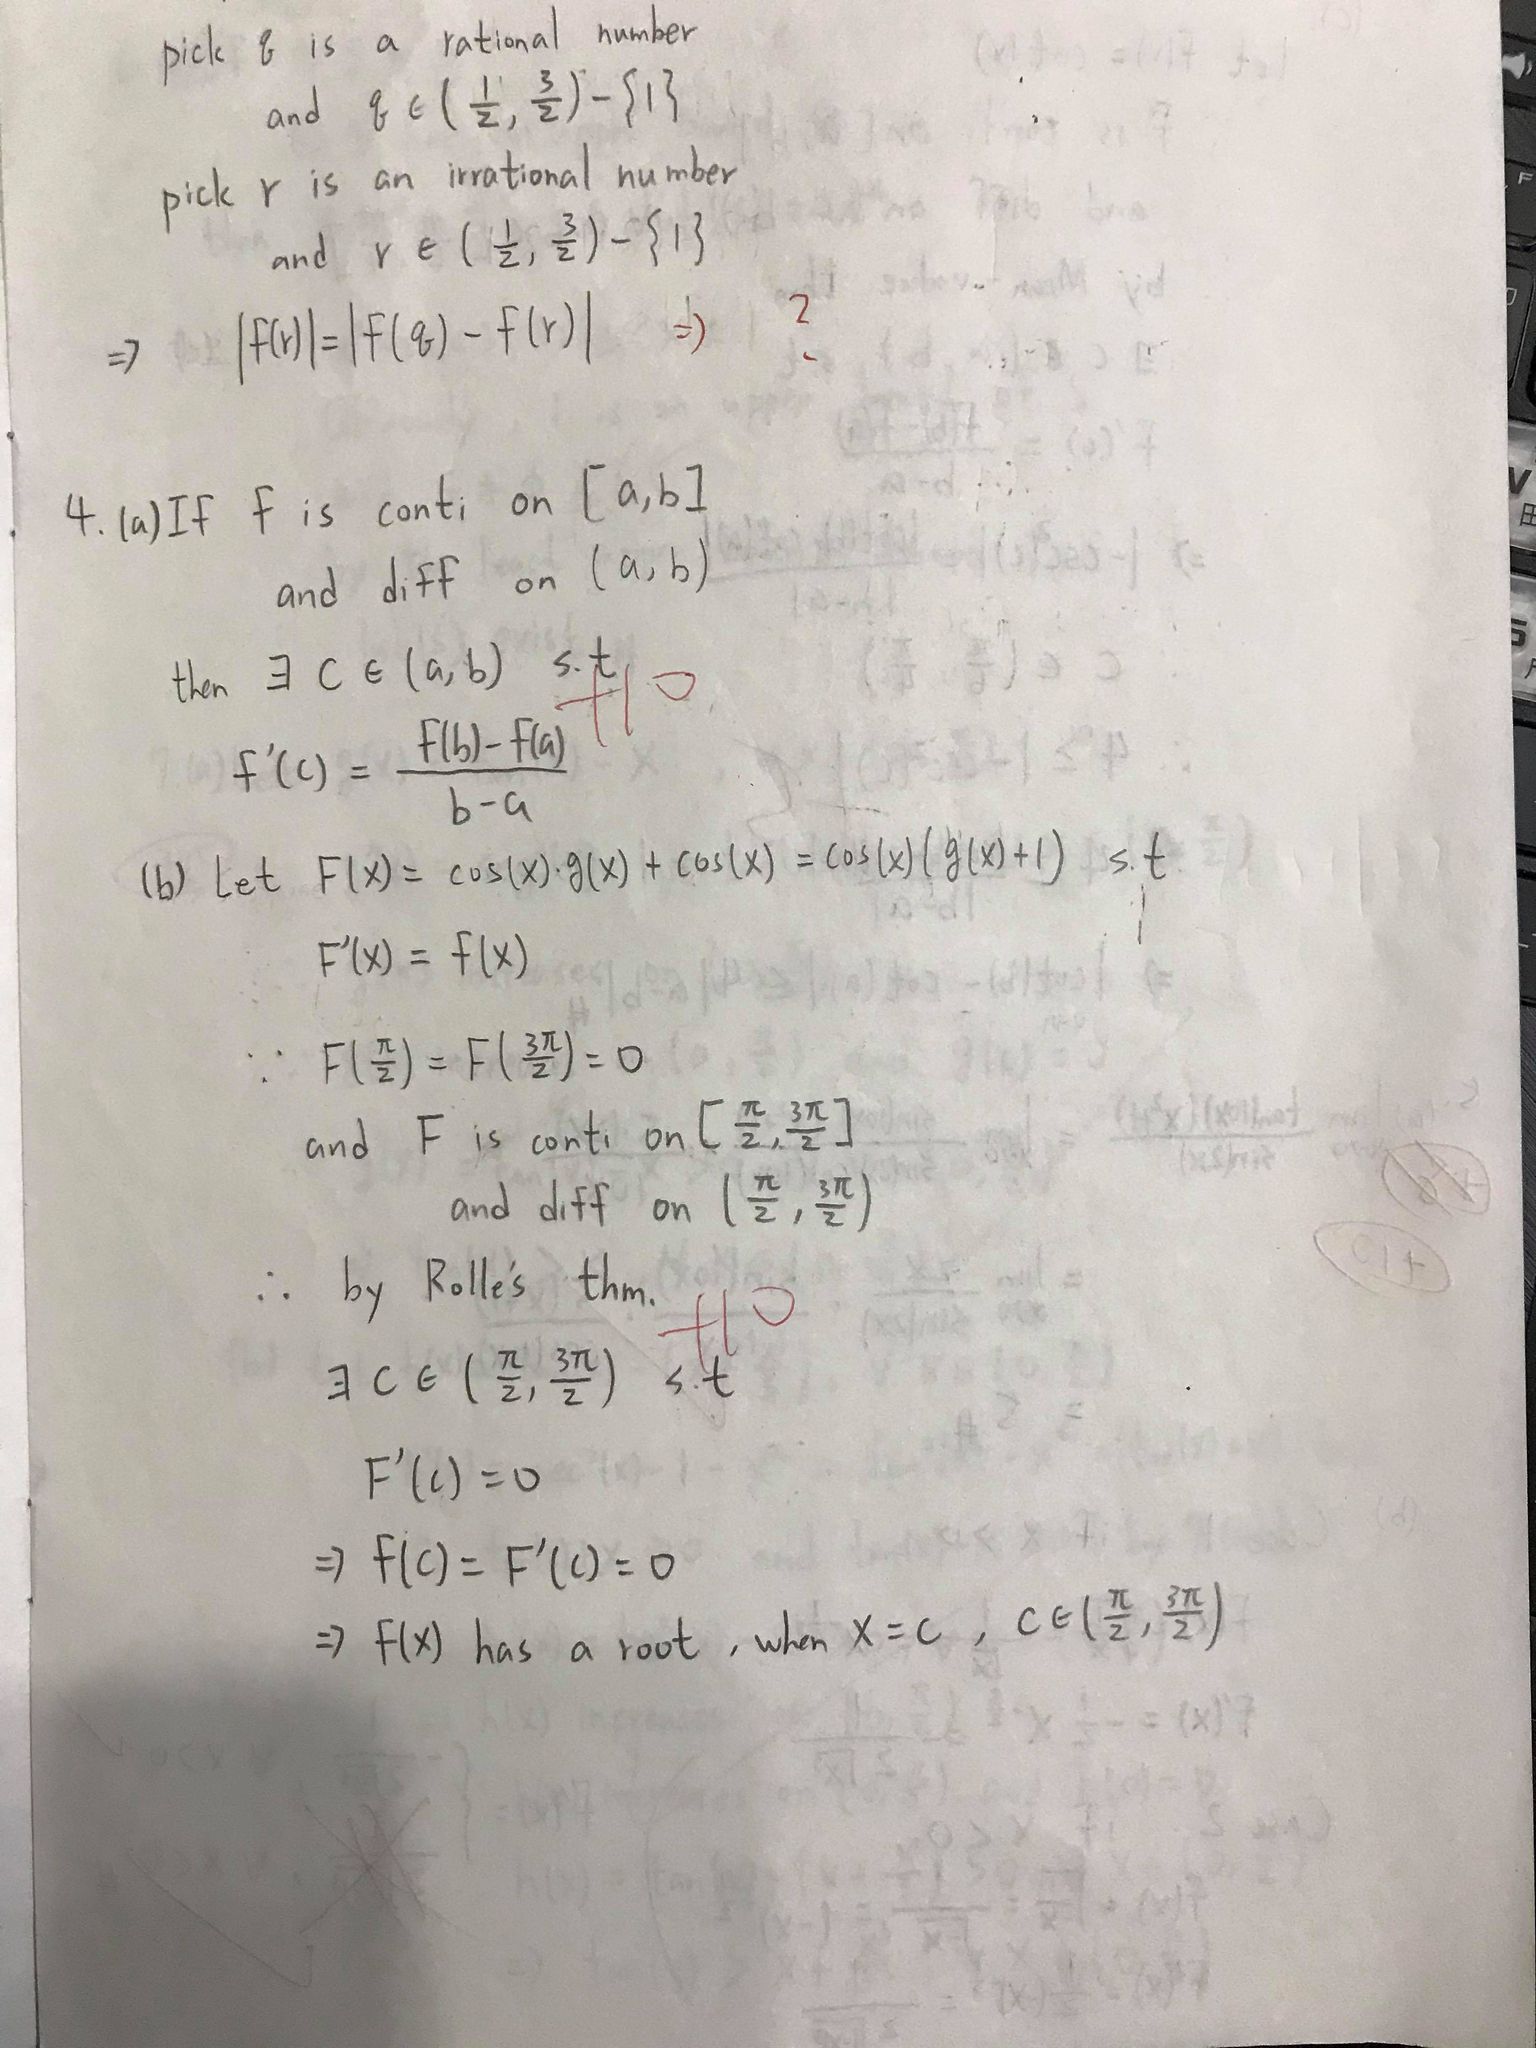 pick q is a rational number
and q ∈ (1/2, 3/2) - {1}
pick r is an irrational number
and r ∈ (1/2, 3/2) - {1}
⇒ |f(r)| = |f(q) - f(r)| ⇒ ?
4. (a) If f is conti on [a,b]
and diff on (a,b)
then ∃ c ∈ (a,b) s.t
+10
f'(c) = f(b)-f(a) / b-a
(b) Let F(x) = cos(x)·g(x) + cos(x) = cos(x)(g(x)+1) s.t
F'(x) = f(x)
∵ F(π/2) = F(3π/2) = 0
and F is conti on [π/2, 3π/2]
and diff on (π/2, 3π/2)
∴ by Rolle's thm.
+10
∃ c ∈ (π/2, 3π/2) s.t
F'(c) = 0
⇒ f(c) = F'(c) = 0
⇒ f(x) has a root, when x = c, c ∈ (π/2, 3π/2)